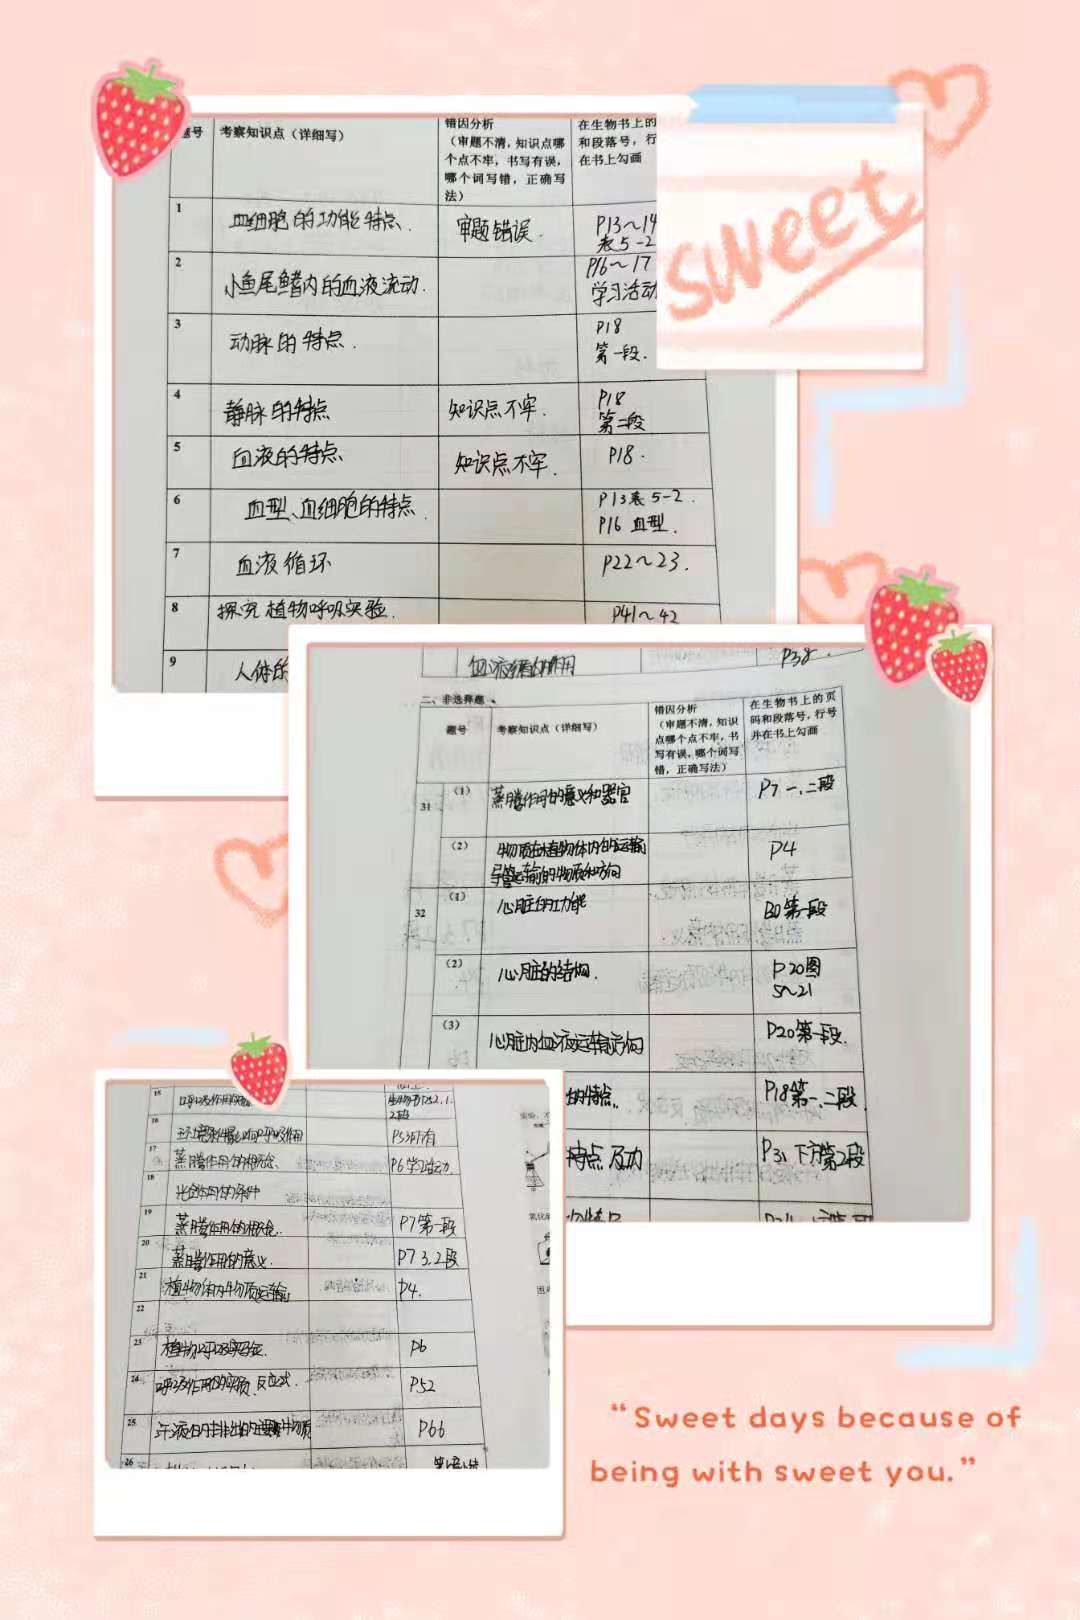 题号 考察知识点（详细写）
错因分析
（审题不清，知识点哪
个点不牢，书写有误，
哪个词写错，正确写
法）
在生物书上的
和段落号，行
在书上勾画
1 血细胞的功能特点. 审题错误. P13～14
表5-2
2 小鱼尾鳍内的血液流动. P16～17
学习活动
3 动脉的特点. P18
第一段.
4 静脉的特点 知识点不牢. P18
第二段
5 血液的特点 知识点不牢. P18.
6 血型、血细胞的特点. P13表5-2.
P16 血型.
7 血液循环 P22～23.
8 探究植物呼吸实验. P41～42
9 人体的
sweet
P38.
二、非选择题
题号 考察知识点（详细写）
错因分析
（审题不清，知识
点哪个点不牢，书
写有误，哪个词写
错，正确写法）
在生物书上的页
码和段落号，行号
并在书上勾画
31 （1） 蒸腾作用的意义和器官 P7一、二段
（2） 物质在植物体内的运输 P4
导管运输的物质和方向
32 （1） 心脏的功能 第一段
（2） 心脏的结构. P20图
5～21
（3） 心脏内血液运输方向 P20第一段.
的特点. P18第一、二段
特点及功 P31下方第2段
15 呼吸作用
生物书P52.1.
2段
16 环境条件影响呼吸作用 P53所有
17 蒸腾作用的概念 P6学习活动.
18 光合作用的条件
19 蒸腾作用的概念. P7第一段
20 蒸腾作用的意义. P7 3.2段
21 植物体内物质运输 P4.
22
23 植物呼吸实验. P6
24 呼吸作用的实质、反应式. P52
25 汗液 P66
26
“Sweet days because of
being with sweet you.”